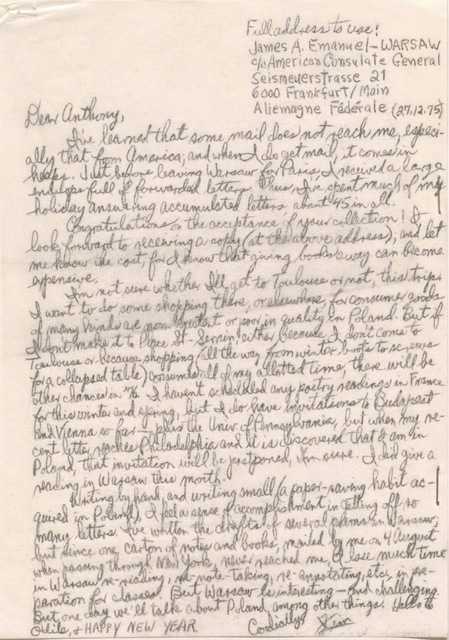 Full address to use!
James A. Emanuel-WARSAW
c/o American Consulate General
Seismeyerstrasse 21
6000 Frankfurt/Main
Allemagne Fédérale (27.12.75)
Dear Anthony,
I've learned that some mail does not reach me, especi-
ally that from America; and when I do get mail, it comes in
heaps. Just before leaving Warsaw for Paris, I received a large
envelope full of forwarded letters. Thus, I've spent much of my
holiday answering accumulated letters about 45 in all.
Congratulations on the acceptance of your collection! I
look forward to receiving a copy (at the above address), and let
me know the cost, for I know that giving books away can become
expensive.
I'm not sure whether I'll get to Toulouse or not, this trip.
I want to do some shopping there, or elsewhere, for consumer goods
of many kinds are non-existent or poor in quality in Poland. But if
I don't make it to Place St.-Sernin either because I don't come to
Toulouse or because shopping (all the way from winter boots to screws
for a collapsed table) consumes all of my allotted time, there will be
other chances in '76. I haven't scheduled any poetry readings in France
for this winter and spring, but I do have invitations to Budapest
and Vienna so far—plus the Univ. of Pennsylvania, but when my re-
cent letter reaches Philadelphia and it is discovered that I am in
Poland, that invitation will be postponed, I'm sure. I did give a
reading in Warsaw this month.
Writing by hand, and writing small (a paper-saving habit ac-
quired in Poland), I feel a sense of accomplishment in telling off so
many letters. I've written the drafts of several poems in Warsaw,
but since one carton of notes and books, mailed by me on 4 August
when passing through New York, never reached me, I lose much time
in Warsaw re-reading, re-note-taking, re-annotating, etc., in pre-
paration for classes. But Warsaw is interesting—and challenging.
But one day we'll talk about Poland, among other things. Hello to
Odile, & HAPPY NEW YEAR Cordially, Jim